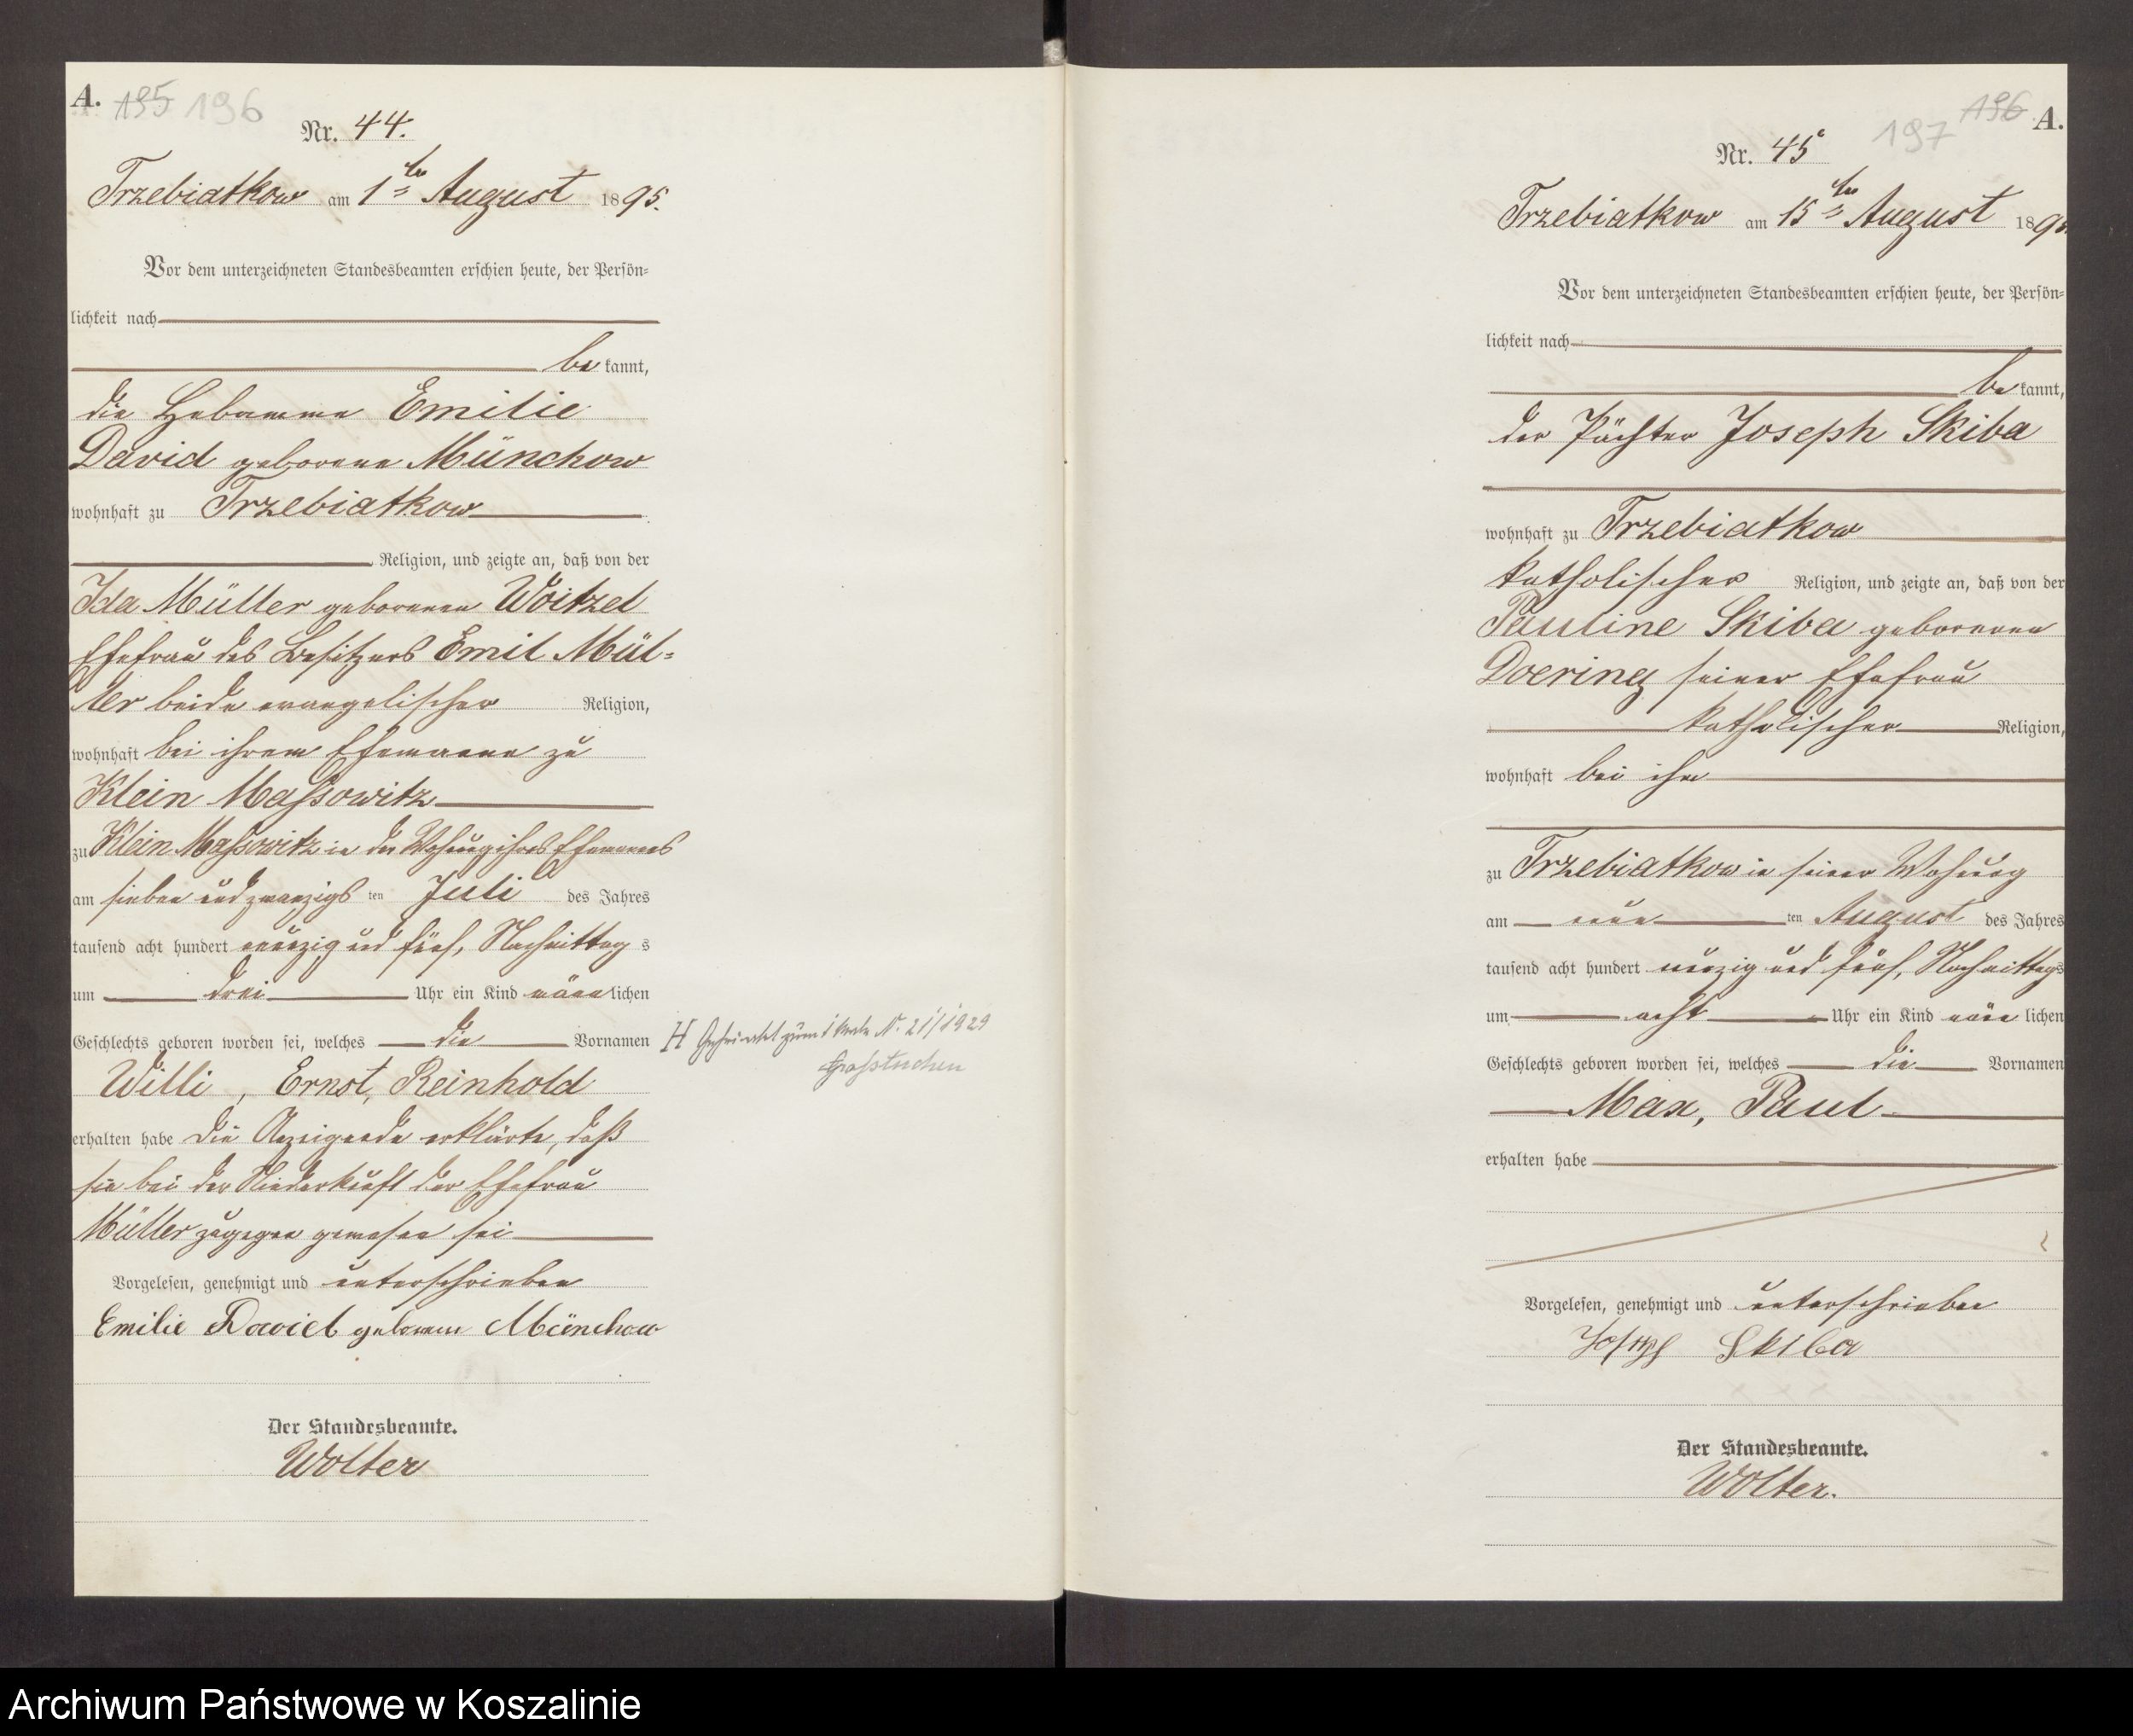 A. 195 196
Nr. 44.
Trzebiatkow am 1ten August 1895.
Vor dem unterzeichneten Standesbeamten erschien heute, der Persön=
lichkeit nach
be kannt,
die Hebamme Emilie
David geborene Münchow
wohnhaft zu Trzebiatkow
Religion, und zeigte an, daß von der
Ida Müller geborenen Woitzel
Ehefrau des Besitzers Emil Mül=
ler beide evangelischer Religion,
wohnhaft bei ihrem Ehemanne zu
Klein Massowitz
zu Klein Massowitz in der Wohnung ihres Ehemannes
am sieben und zwanzigs ten Juli des Jahres
tausend acht hundert neunzig und fünf, Nachmittag s
um drei Uhr ein Kind männ lichen
Geschlechts geboren worden sei, welches die Vornamen
H Geheiratet zum 1 Male N. 21/1929
Willi, Ernst, Reinhold
erhalten habe Die Anzeigende erklärte, daß
sie bei der Niederkunft der Ehefrau
Müller zugegen gewesen sei
Vorgelesen, genehmigt und unterschrieben
Emilie David geborene Münchow
Der Standesbeamte.
Wolter
196 A.
197
Nr. 45
Trzebiatkow am 15ten August 189
Vor dem unterzeichneten Standesbeamten erschien heute, der Persön=
lichkeit nach
be kannt,
der Pächter Joseph Skiba
wohnhaft zu Trzebiatkow
katholischer Religion, und zeigte an, daß von der
Pauline Skiba geborenen
Doering seiner Ehefrau
katholischer Religion,
wohnhaft bei ihm
zu Trzebiatkow in seiner Wohnung
am neun ten August des Jahres
tausend acht hundert neunzig und fünf, Nachmittags
um acht Uhr ein Kind männ lichen
Geschlechts geboren worden sei, welches die Vornamen
Max, Paul
erhalten habe
Vorgelesen, genehmigt und unterschrieben
Joseph Skiba
Der Standesbeamte.
Wolter.
Archiwum Państwowe w Koszalinie